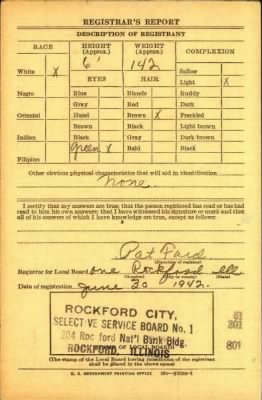 REGISTRAR'S REPORT
DESCRIPTION OF REGISTRANT
RACE HEIGHT (Approx.) WEIGHT (Approx.) COMPLEXION
6' 142
White X Sallow
EYES HAIR Light X
Negro Blue Blonde Ruddy
Gray Red Dark
Oriental Hazel Brown X Freckled
Brown Black Light brown
Indian Black Gray Dark brown
green X Bald Black
Filipino
Other obvious physical characteristics that will aid in identification
None
I certify that my answers are true; that the person registered has read or has had
read to him his own answers; that I have witnessed his signature or mark and that
all of his answers of which I have knowledge are true, except as follows:
Pat Ford
(Signature of registrar)
Registrar for Local Board one Rockford Ill
(Number) (City or county) (State)
Date of registration June 30 1942.
ROCKFORD CITY, 61
SELECTIVE SERVICE BOARD No. 1 201
204 Rockford Nat'l Bank Bldg. 801
ROCKFORD, ILLINOIS
(STAMP OF LOCAL BOARD)
(The stamp of the Local Board having jurisdiction of the registrant
shall be placed in the above space)
U. S. GOVERNMENT PRINTING OFFICE 16—21630-1